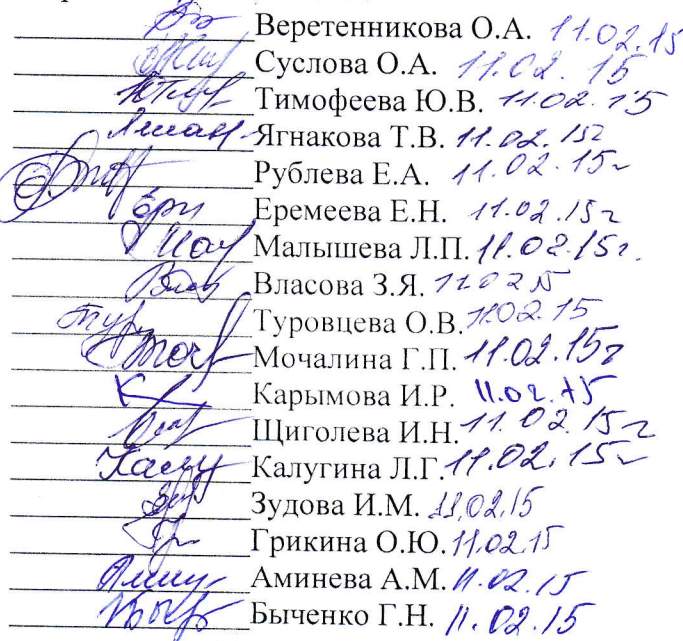 Веретенникова О.А. 11.02.15
Суслова О.А. 11.02.15
Тимофеева Ю.В. 11.02.15
Ягнакова Т.В. 11.02.15г
Рублева Е.А. 11.02.15г
Еремеева Е.Н. 11.02.15г
Малышева Л.П. 11.02.15г.
Власова З.Я. 11.02.15
Туровцева О.В. 11.02.15
Мочалина Г.П. 11.02.15г
Карымова И.Р. 11.02.15
Щиголева И.Н. 11.02.15г
Калугина Л.Г. 11.02.15г
Зудова И.М. 11.02.15
Грикина О.Ю. 11.02.15
Аминева А.М. 11.02.15
Быченко Г.Н. 11.02.15